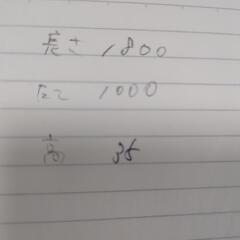 長さ 1800
巾 1000
高 35